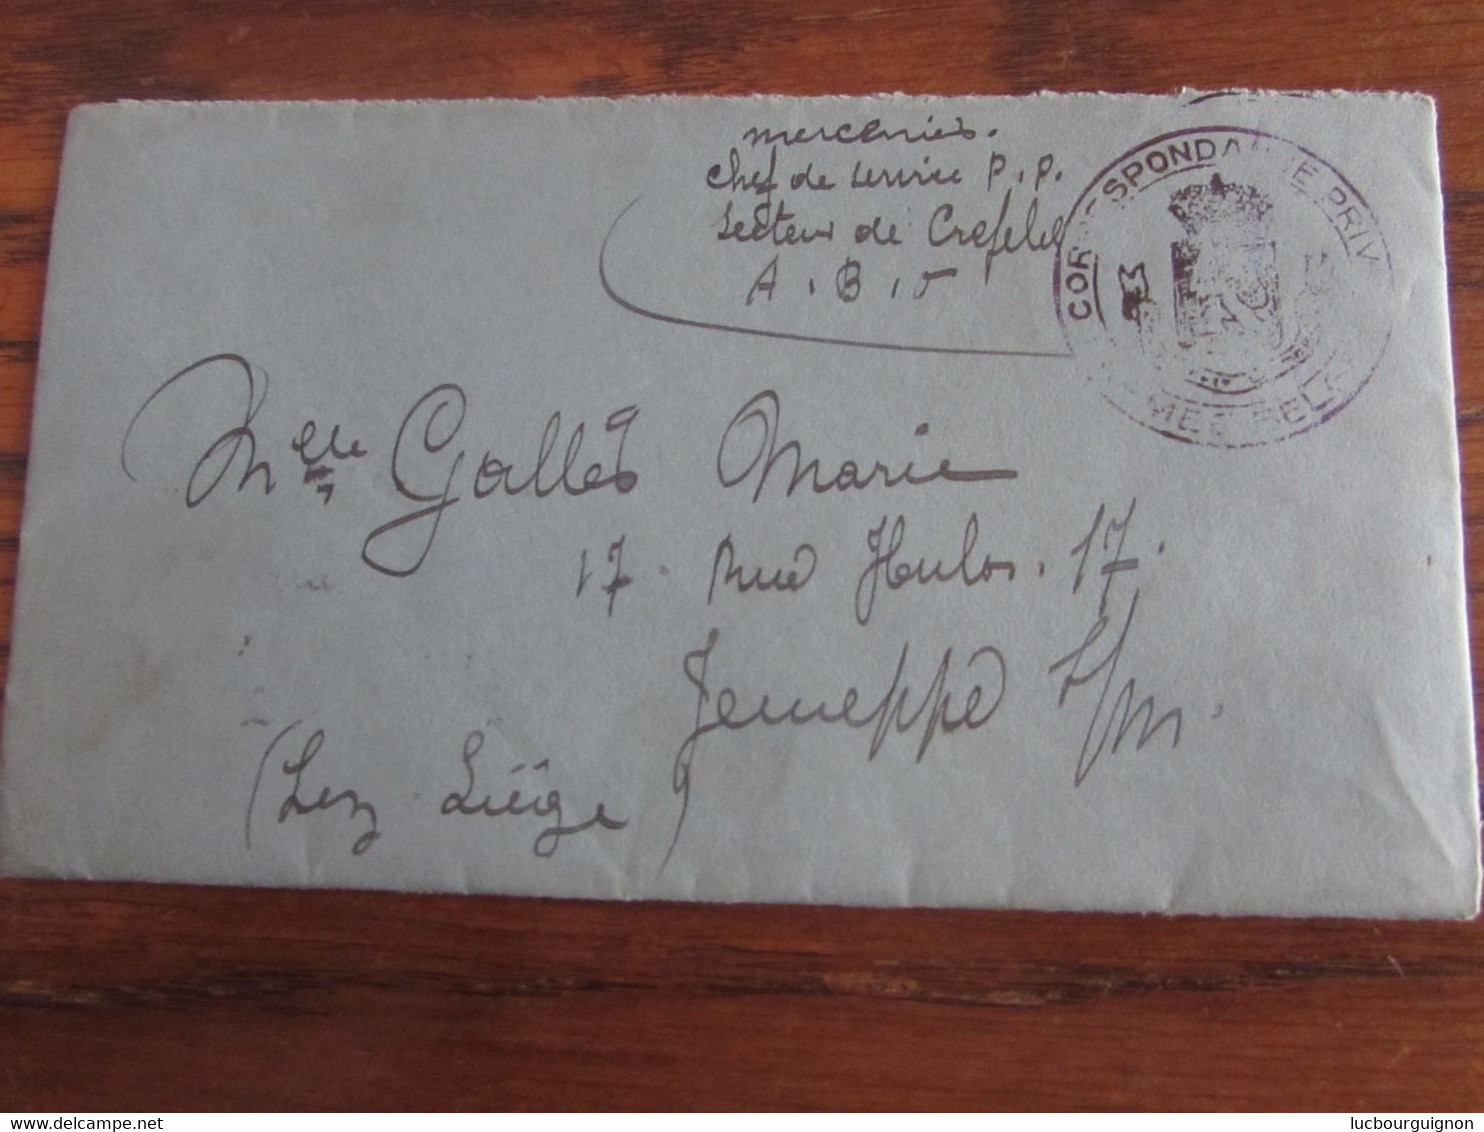 chef de service P.P.
Secteur de Crefeld
A.B.
CORRESPONDANCE PRIV
BEL
Melle Gallès Marie
17. Rue Heulos. 17.
Jemeppe s/m.
(Lez Liège)
delcampe.net
lucbourguignon